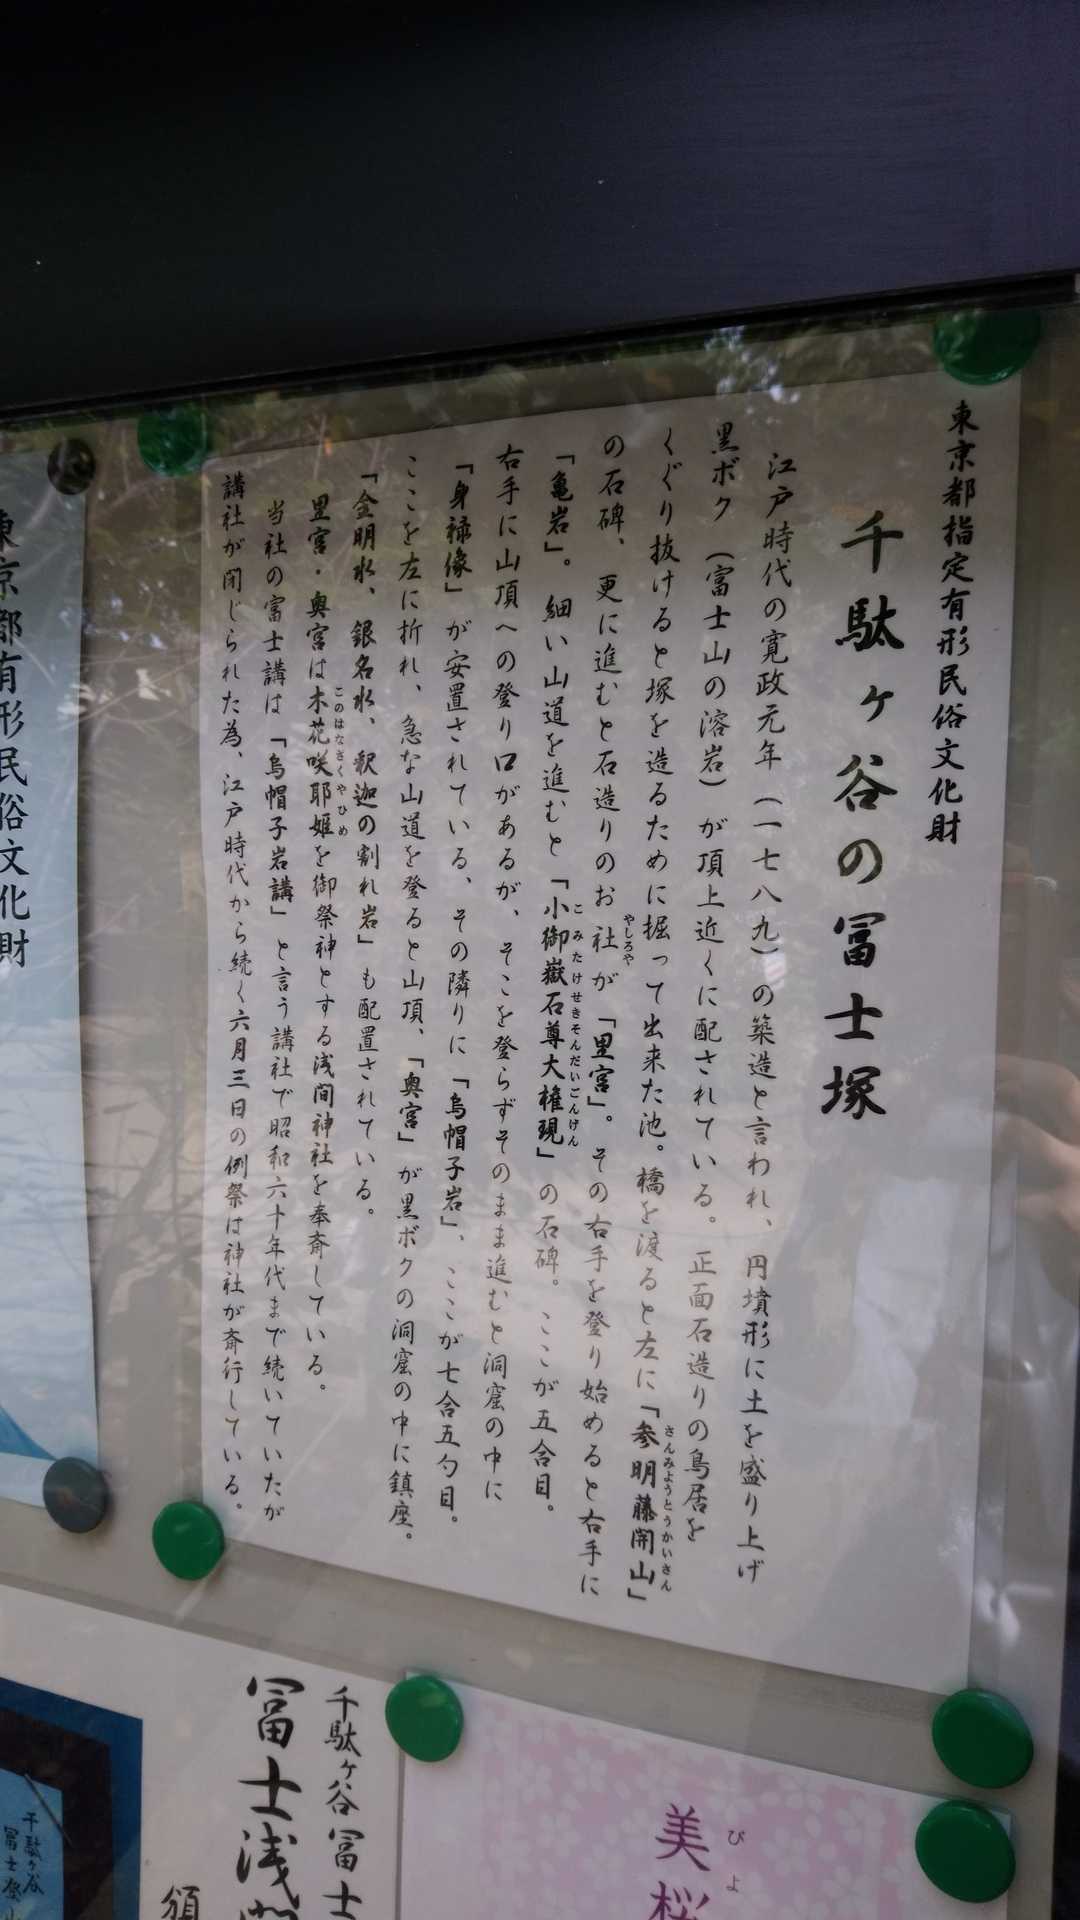 東京都指定有形民俗文化財
千駄ヶ谷の冨士塚
江戸時代の寛政元年（一七八九）の築造と言われ、円墳形に土を盛り上げ
黒ボク（富士山の溶岩）が頂上近くに配されている。正面石造りの鳥居を
くぐり抜けると塚を造るために掘って出来た池。橋を渡ると左に「参明藤開山」
さんみようとうかいさん
の石碑、更に進むと石造りのお社が「里宮」。その右手を登り始めると右手に
やしろや
「亀岩」。細い山道を進むと「小御嶽石尊大権現」の石碑。ここが五合目。
こみたけせきそんだいごんけん
右手に山頂への登り口があるが、そこを登らずそのまま進むと洞窟の中に
「身禄像」が安置されている、その隣りに「烏帽子岩」、ここが七合五勺目。
ここを左に折れ、急な山道を登ると山頂、「奥宮」が黒ボクの洞窟の中に鎮座。
「金明水、銀名水、釈迦の割れ岩」も配置されている。
里宮・奥宮は木花咲耶姫を御祭神とする浅間神社を奉斎している。
このはなさくやひめ
当社の富士講は「烏帽子岩講」と言う講社で昭和六十年代まで続いていたが
講社が閉じられた為、江戸時代から続く六月三日の例祭は神社が斎行している。
東京都有形民俗文化財
千駄ヶ谷冨士
冨士浅間
頒
千駄ヶ谷
冨士登山
美桜
びよ